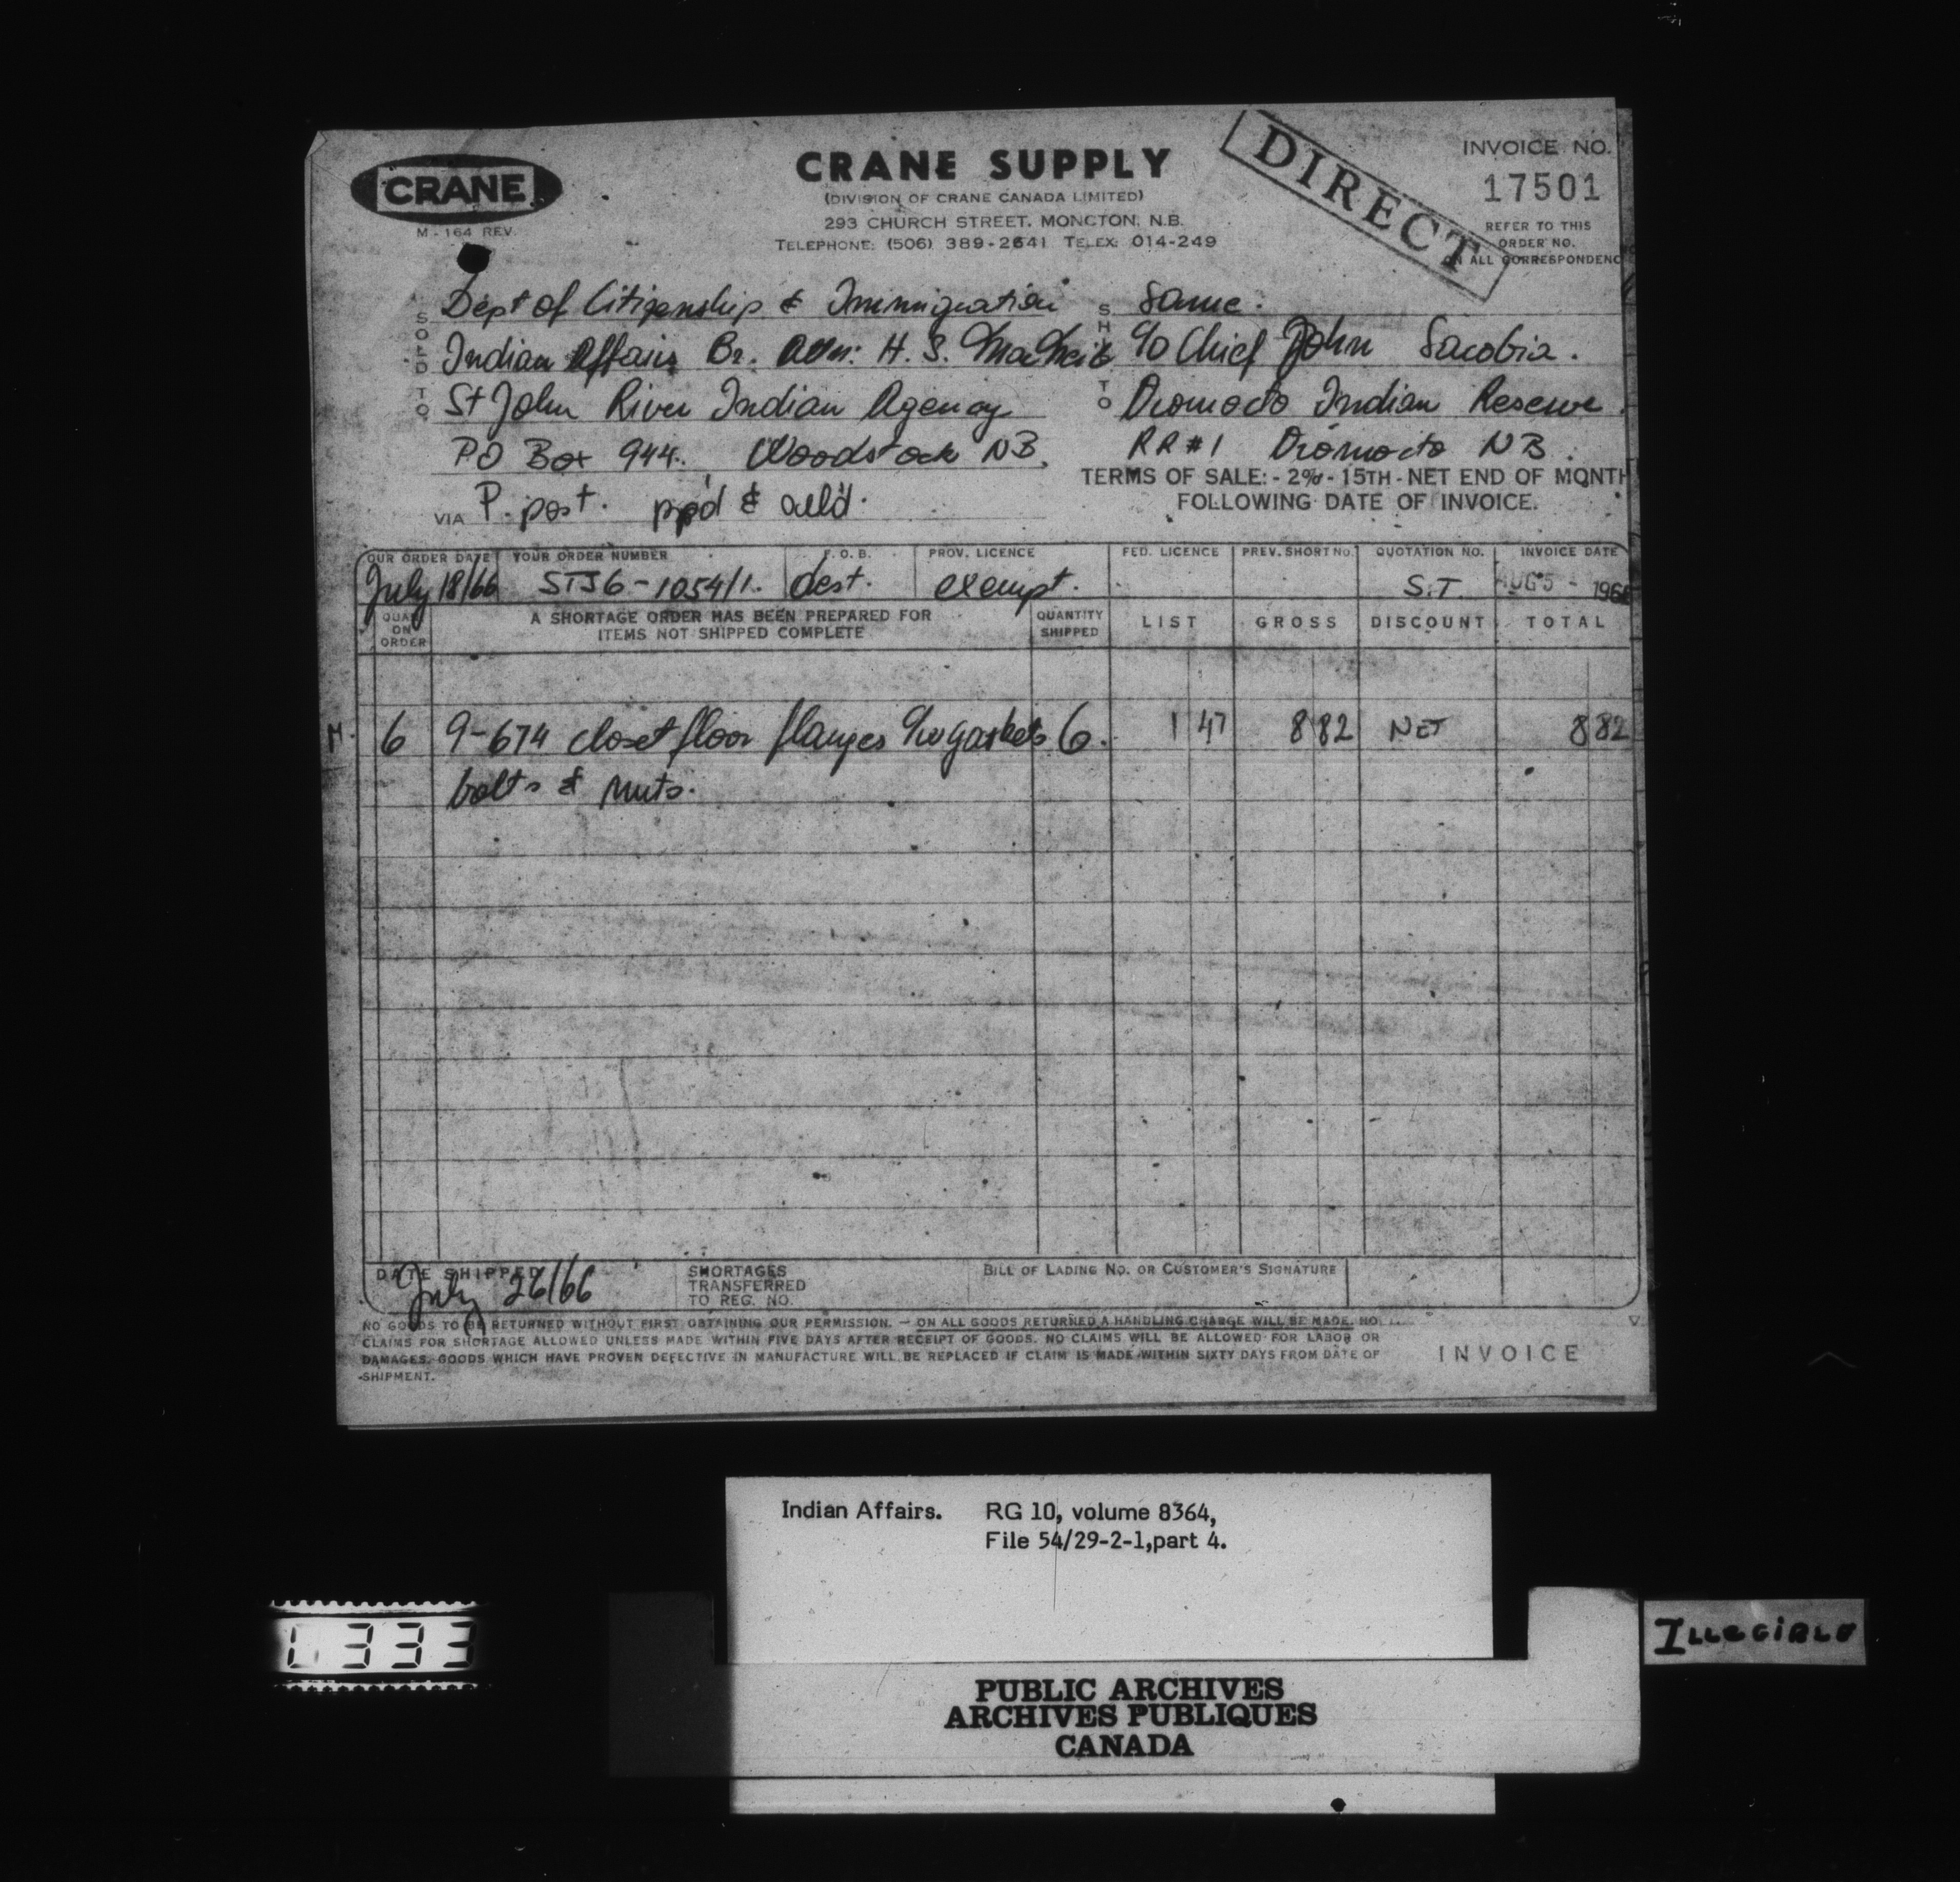 CRANE
M-164 REV.
CRANE SUPPLY
(DIVISION OF CRANE CANADA LIMITED)
293 CHURCH STREET, MONCTON, N.B.
TELEPHONE: (506) 389-2641 TELEX: 014-249
DIRECT
INVOICE NO.
17501
REFER TO THIS
ORDER NO.
ON ALL CORRESPONDENC
SOLD TO
Dept of Citizenship & Immigration
Indian Affairs Br. Attn: H. S.
St John River Indian Agency
PO Box 944. Woodstock NB.
VIA P. post. pp'd & all'd.
SHIP TO
Same.
c/o Chief John Sacobia.
Oromocto Indian Reserve.
RR#1 Oromocto NB.
TERMS OF SALE: - 2% - 15TH - NET END OF MONTH
FOLLOWING DATE OF INVOICE.
OUR ORDER DATE YOUR ORDER NUMBER F.O.B. PROV. LICENCE FED. LICENCE PREV. SHORT NO. QUOTATION NO. INVOICE DATE
July 18/66 STJ6-1054/1. dest. exempt. S.T. AUG 5 - 1966
QUAN ON ORDER A SHORTAGE ORDER HAS BEEN PREPARED FOR ITEMS NOT SHIPPED COMPLETE QUANTITY SHIPPED LIST GROSS DISCOUNT TOTAL
M. 6 9-674 closet floor flanges gaskets 6. 1 47 8 82 NET 8 82
bolts & nuts.
DATE SHIPPED
July 26/66
SHORTAGES
TRANSFERRED
TO REG. NO.
BILL OF LADING NO. OR CUSTOMER'S SIGNATURE
NO GOODS TO BE RETURNED WITHOUT FIRST OBTAINING OUR PERMISSION. — ON ALL GOODS RETURNED A HANDLING CHARGE WILL BE MADE. NO
CLAIMS FOR SHORTAGE ALLOWED UNLESS MADE WITHIN FIVE DAYS AFTER RECEIPT OF GOODS. NO CLAIMS WILL BE ALLOWED FOR LABOR OR
DAMAGES. GOODS WHICH HAVE PROVEN DEFECTIVE IN MANUFACTURE WILL BE REPLACED IF CLAIM IS MADE WITHIN SIXTY DAYS FROM DATE OF
SHIPMENT.
INVOICE
Indian Affairs. RG 10, volume 8364,
File 54/29-2-1,part 4.
333
ILLEGIBLE
PUBLIC ARCHIVES
ARCHIVES PUBLIQUES
CANADA